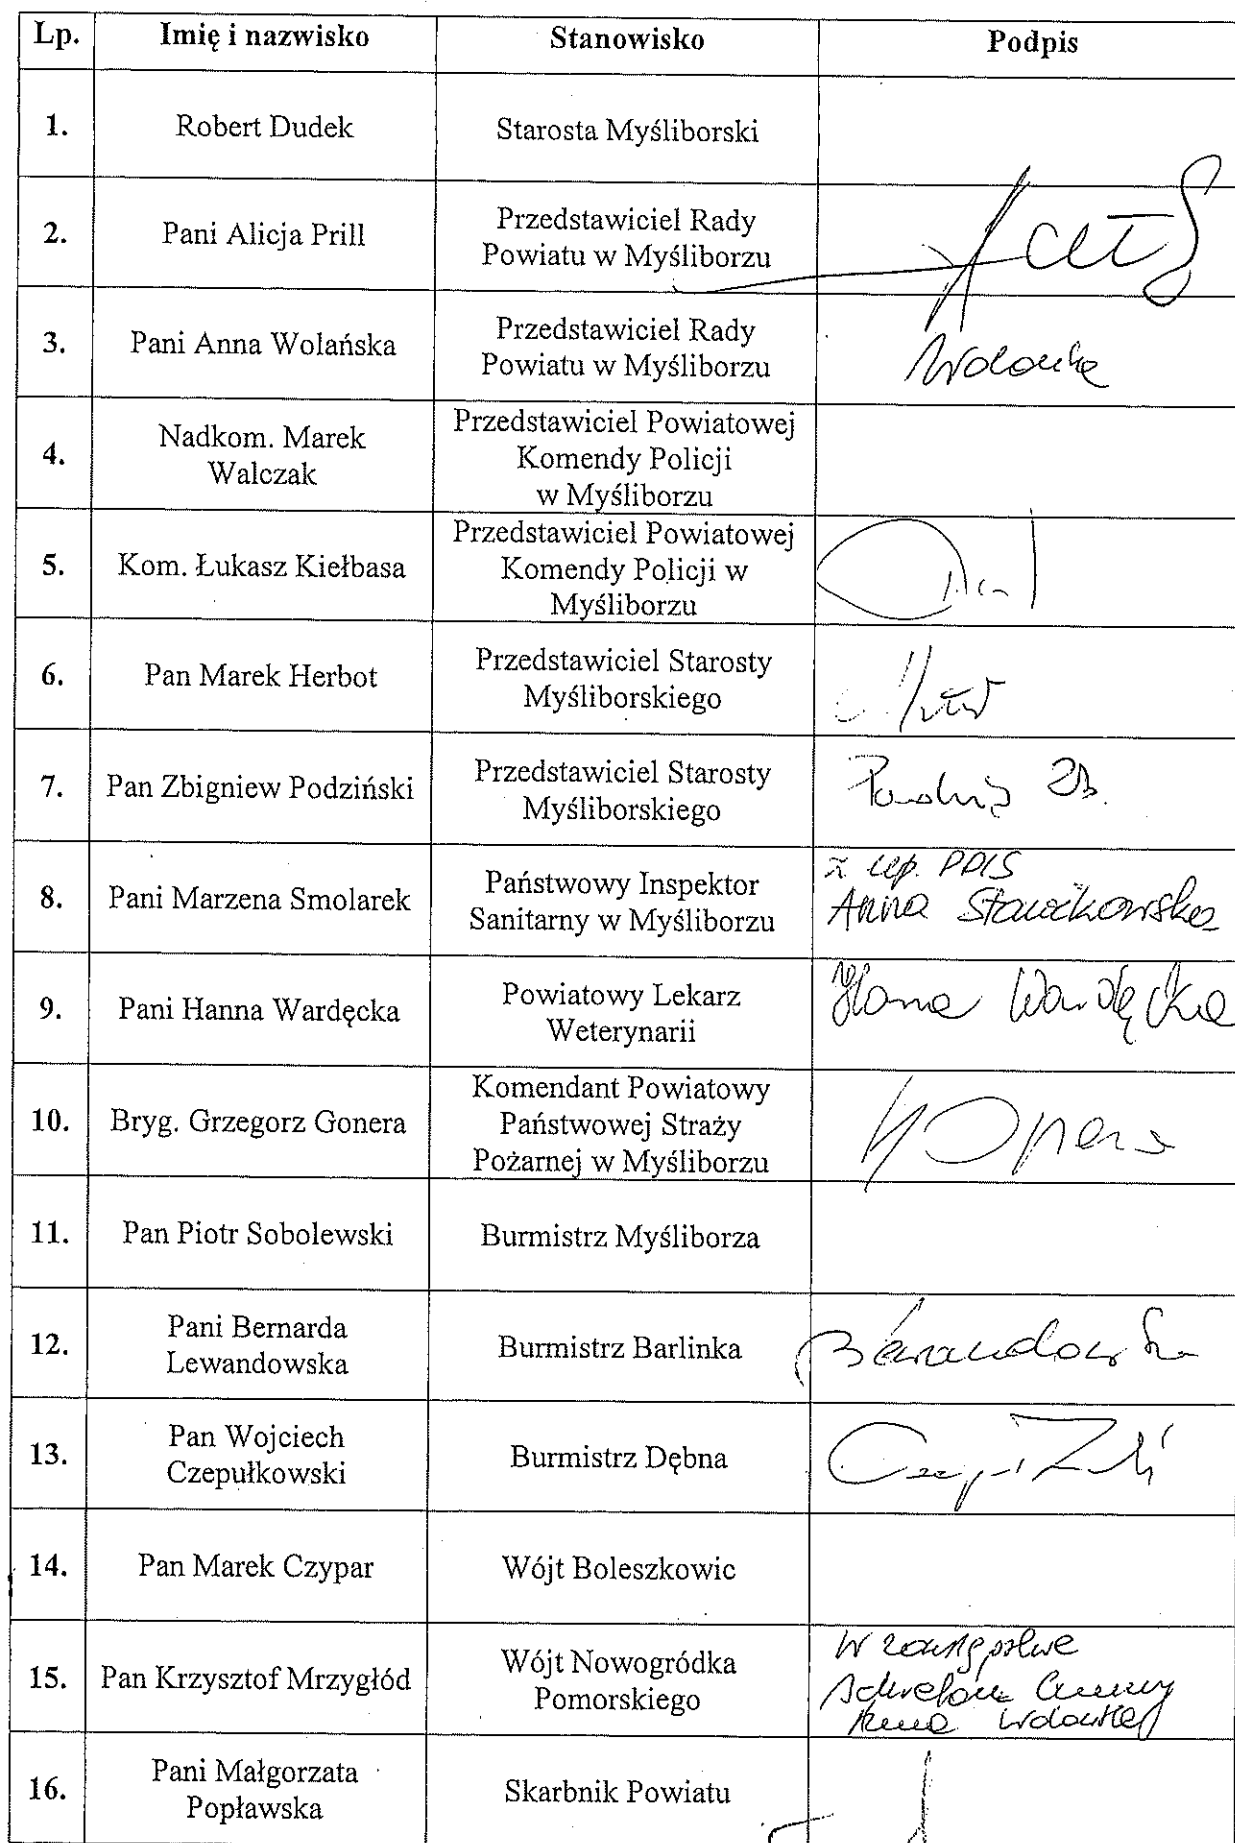 Lp. Imię i nazwisko Stanowisko Podpis
1. Robert Dudek Starosta Myśliborski
2. Pani Alicja Prill Przedstawiciel Rady
Powiatu w Myśliborzu
3. Pani Anna Wolańska Przedstawiciel Rady
Powiatu w Myśliborzu
4. Nadkom. Marek
Walczak
Przedstawiciel Powiatowej
Komendy Policji
w Myśliborzu
5. Kom. Łukasz Kiełbasa Przedstawiciel Powiatowej
Komendy Policji w
Myśliborzu
6. Pan Marek Herbot Przedstawiciel Starosty
Myśliborskiego
7. Pan Zbigniew Podziński Przedstawiciel Starosty
Myśliborskiego
8. Pani Marzena Smolarek Państwowy Inspektor
Sanitarny w Myśliborzu
Anna
9. Pani Hanna Wardęcka Powiatowy Lekarz
Weterynarii
Wardęcka
10. Bryg. Grzegorz Gonera Komendant Powiatowy
Państwowej Straży
Pożarnej w Myśliborzu
11. Pan Piotr Sobolewski Burmistrz Myśliborza
12. Pani Bernarda
Lewandowska
Burmistrz Barlinka
13. Pan Wojciech
Czepułkowski
Burmistrz Dębna
14. Pan Marek Czypar Wójt Boleszkowic
15. Pan Krzysztof Mrzygłód Wójt Nowogródka
Pomorskiego
16. Pani Małgorzata
Popławska
Skarbnik Powiatu